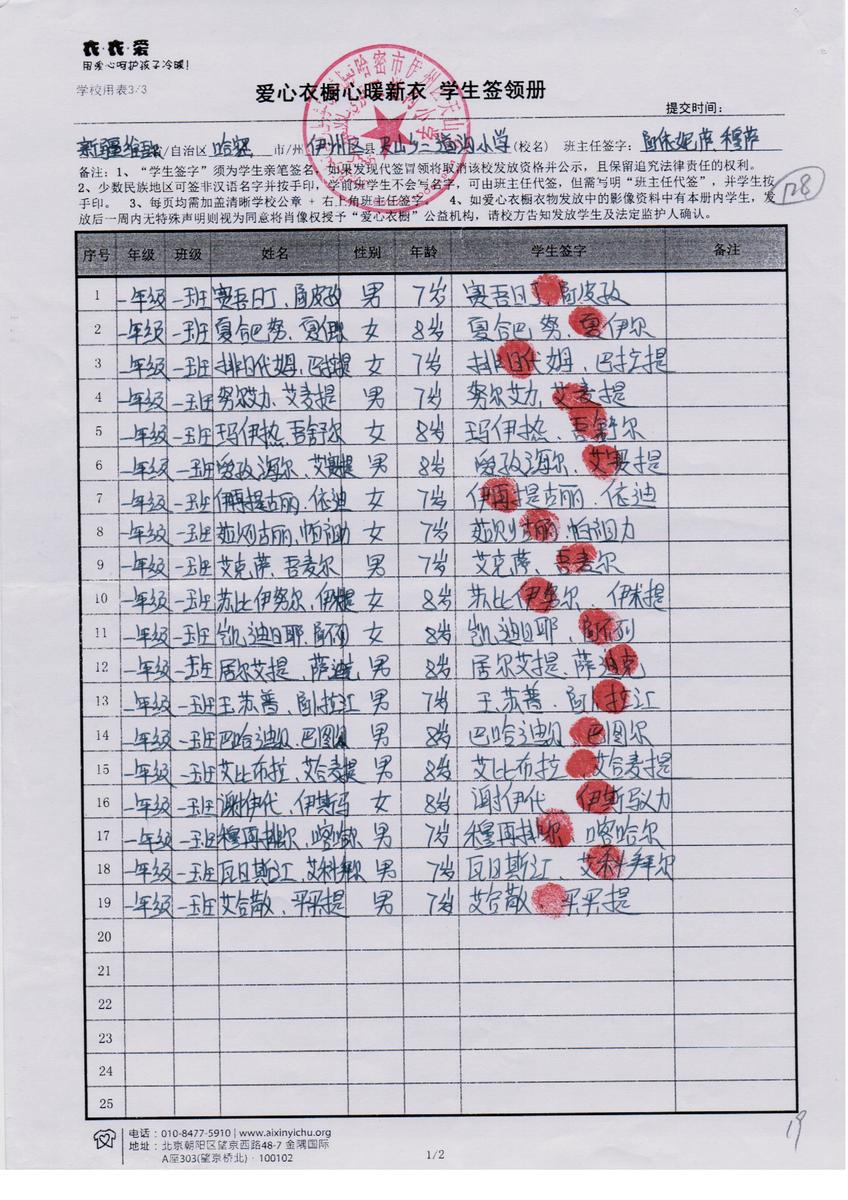 衣·衣·爱
用爱心呵护孩子冷暖!
学校用表3/3
爱心衣橱心暖新衣 学生签领册
提交时间:
新疆维吾尔/自治区 哈密 市/州 伊州区 县 天山乡二道沟小学(校名) 班主任签字:
备注:1、“学生签字”须为学生亲笔签名,如果发现代签冒领将取消该校发放资格并公示,且保留追究法律责任的权利。
2、少数民族地区可签非汉语名字并按手印,学前班学生不会写名字,可由班主任代签,但需写明“班主任代签”,并学生按
手印。 3、每页均需加盖清晰学校公章 + 右上角班主任签字。 4、如爱心衣橱衣物发放中的影像资料中有本册内学生,发
放后一周内无特殊声明则视为同意将肖像权授予“爱心衣橱”公益机构,请校方告知发放学生及法定监护人确认。
128
序号 年级 班级 姓名 性别 年龄 学生签字 备注
1 一年级 一班 赛吾日丁、阿皮孜 男 7岁 赛吾日丁、阿皮孜
2 一年级 一班 夏合巴努、夏伊尔 女 8岁 夏合巴努、夏伊尔
3 一年级 一班 排日代姆、巴拉提 女 7岁 排日代姆、巴拉提
4 一年级 一班 努尔艾力、艾麦提 男 7岁 努尔艾力、艾麦提
5 一年级 一班 玛伊热、吾舒尔 女 8岁 玛伊热、吾舒尔
6 一年级 一班 爱孜海尔、艾赛提 男 8岁 爱孜海尔、艾赛提
7 一年级 一班 伊再提古丽、依迪 女 7岁 伊再提古丽、依迪
8 一年级 一班 女 7岁
9 一年级 一班 艾克萨、吾麦尔 男 7岁 艾克萨、吾麦尔
10 一年级 一班 苏比伊努尔、伊米提 女 8岁 苏比伊努尔、伊米提
11 一年级 一班 凯迪日耶、 女 8岁 凯迪日耶、
12 一年级 一班 居尔艾提、萨迪克 男 8岁 居尔艾提、萨迪克
13 一年级 一班 玉苏普、 男 7岁 玉苏普、
14 一年级 一班 巴哈迪尔、巴图尔 男 8岁 巴哈迪尔、巴图尔
15 一年级 一班 艾比布拉、艾合麦提 男 8岁 艾比布拉、艾合麦提
16 一年级 一班 谢伊代、伊斯马 女 8岁 谢伊代 伊斯马义力
17 一年级 一班 穆再排尔、喀哈尔 男 7岁 穆再排尔 喀哈尔
18 一年级 一班 瓦日斯江、艾科拜尔 男 7岁 瓦日斯江、艾科拜尔
19 一年级 一班 艾合散、买买提 男 7岁 艾合散、买买提
20
21
22
23
24
25
电话:010-8477-5910 | www.aixinyichu.org
地址:北京朝阳区望京西路48-7 金隅国际
A座303(望京桥北)·100102
1/2
19